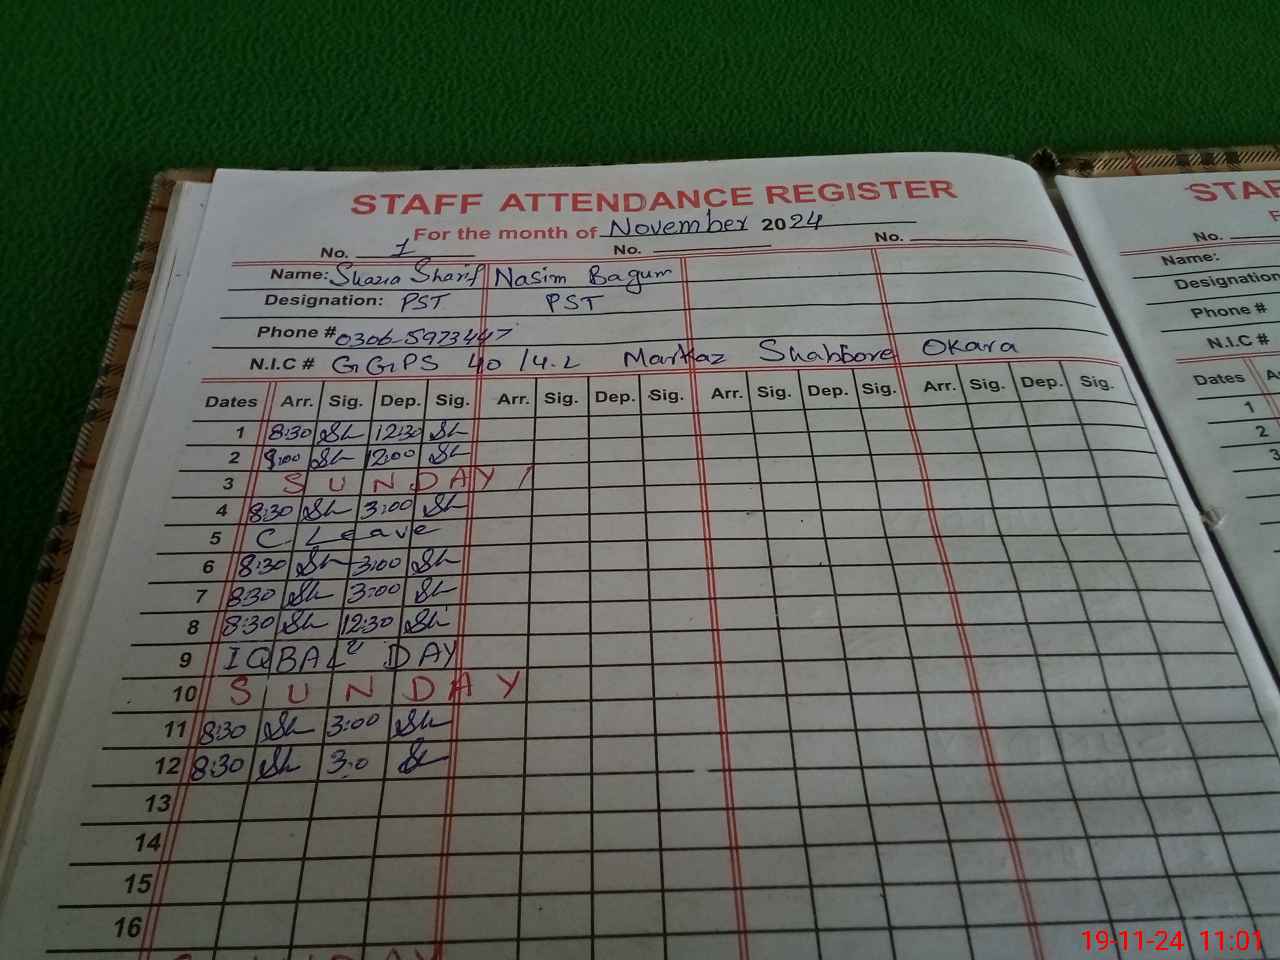 STAFF ATTENDANCE REGISTER
For the month of November 2024
No. 1 No. No.
Name: Shazia Sharif Nasim Bagum
Designation: PST PST
Phone # 0306-5973447
N.I.C # GGPS 40/4.L Markaz Shahbore Okara
Dates Arr. Sig. Dep. Sig. Arr. Sig. Dep. Sig. Arr. Sig. Dep. Sig. Arr. Sig. Dep. Sig.
1 8:30 Sh 12:30 Sh
2 9:00 Sh 12:00 Sh
3 SUNDAY
4 8:30 Sh 3:00 Sh
5 C. Leave
6 8:30 Sh 3:00 Sh
7 8:30 Sh 3:00 Sh
8 8:30 Sh 12:30 Sh
9 IQBAL DAY
10 SUNDAY
11 8:30 Sh 3:00 Sh
12 8:30 Sh 3:0 Sh
13
14
15
16
STAF
No.
Name:
Designation
Phone #
N.I.C #
Dates
1
2
3
19-11-24 11:01